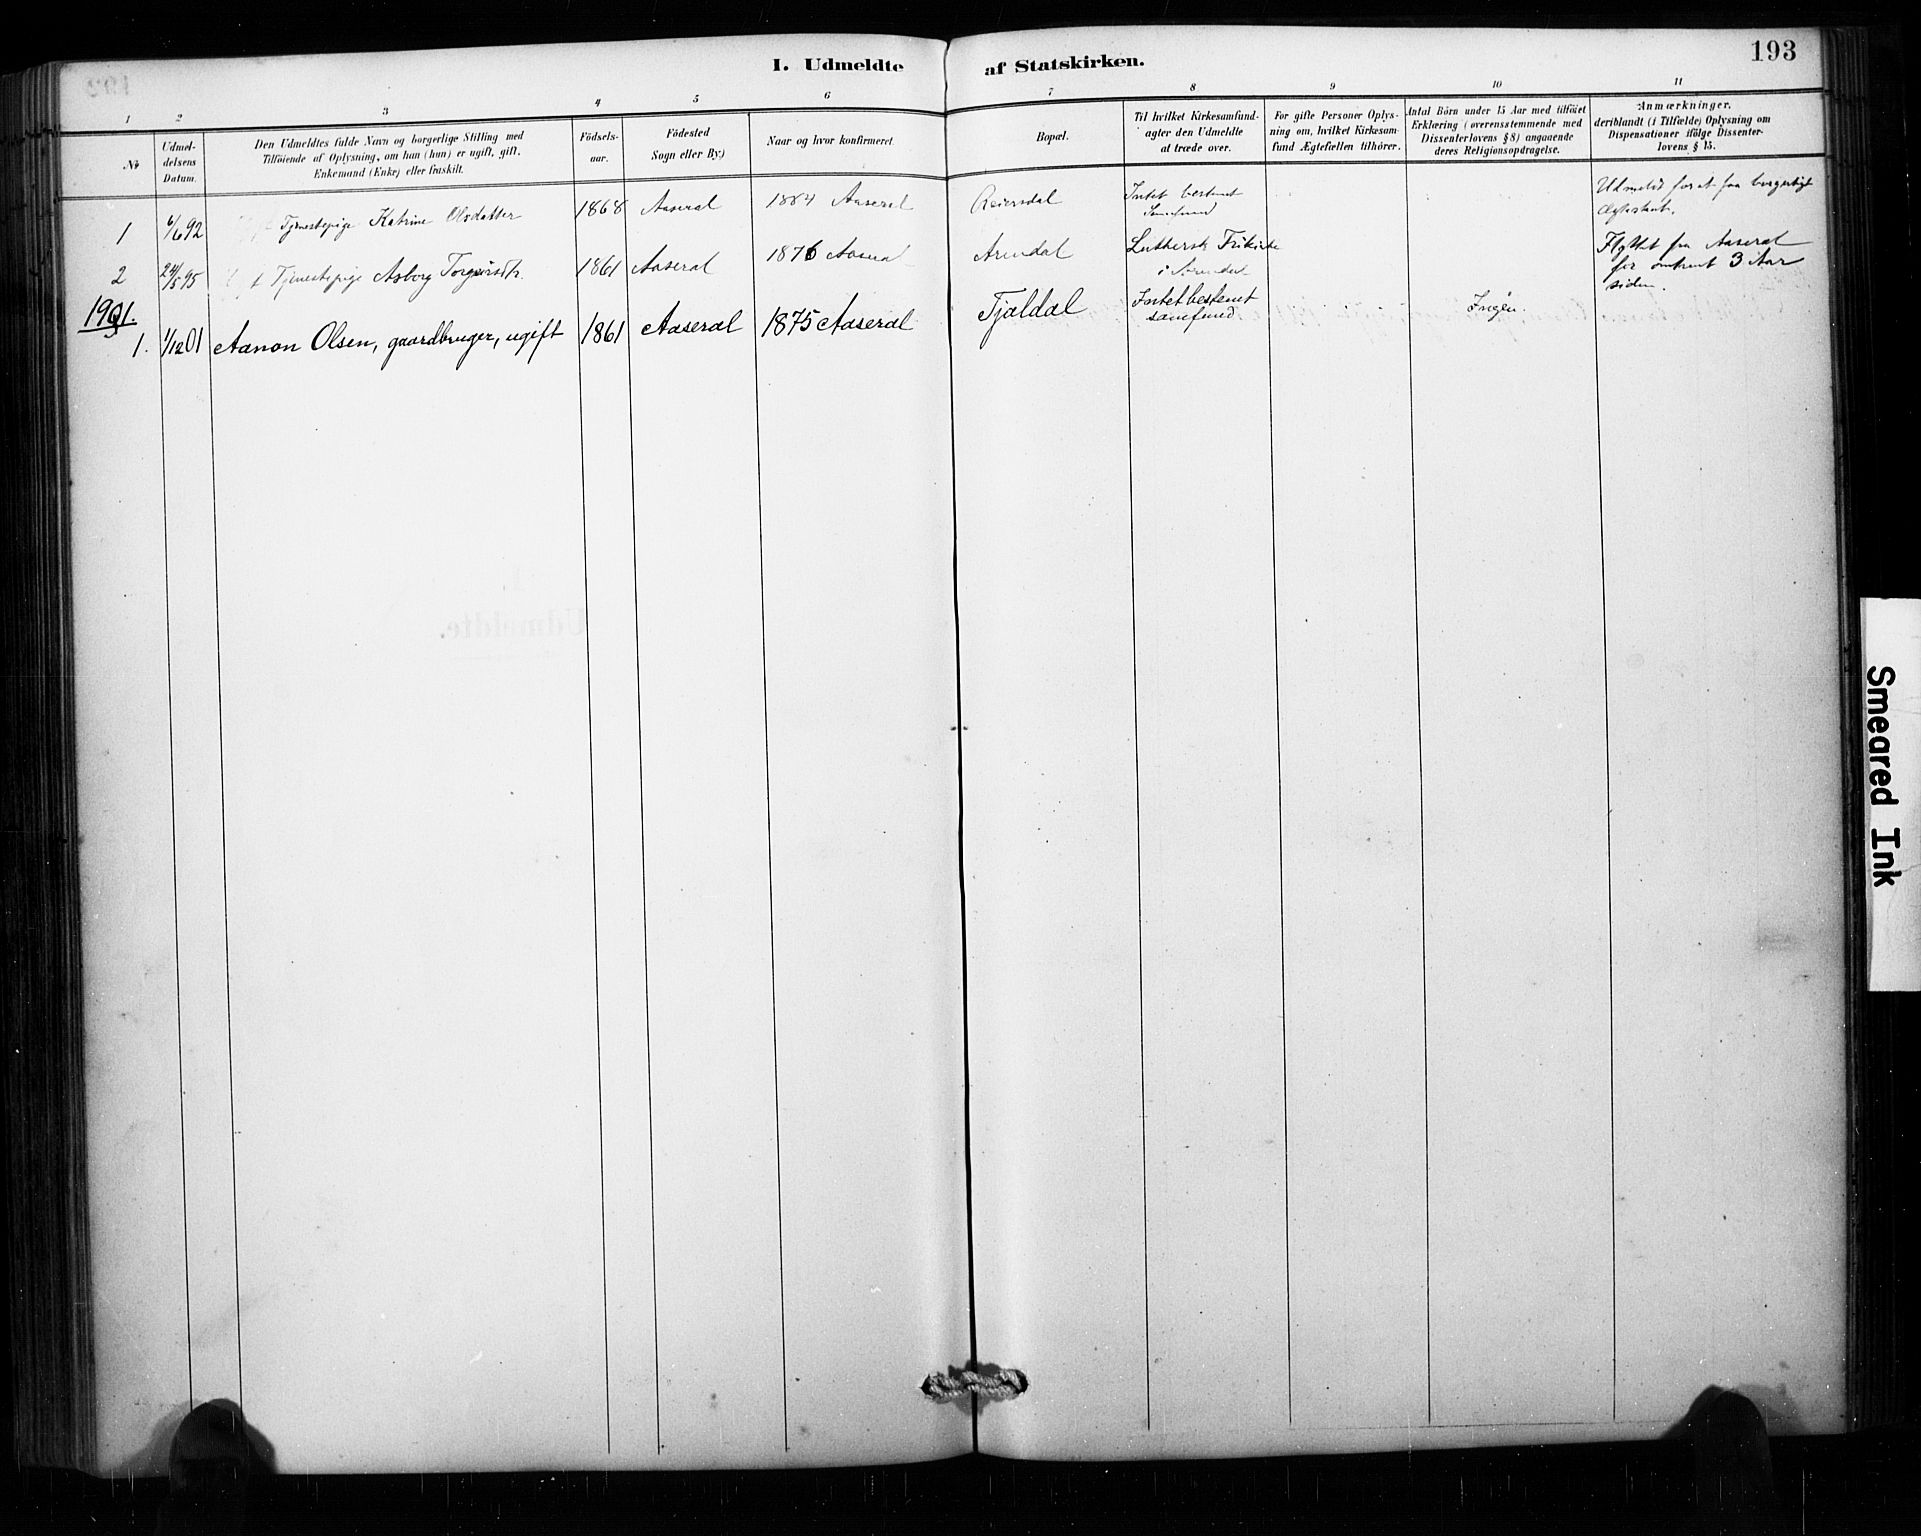 I. Udmeldte af Statskirken.
193
1 2 3 4 5 6 7 8 9 10 11
No
Udmel-
delsens
Datum.
Den Udmeldtes fulde Navn og borgerlige Stilling med
Tilföiende af Oplysning, om han (hun) er ugift, gift,
Enkemand (Enke) eller fraskilt.
Födsels-
aar.
Födested
Sogn eller By.)
Naar og hvor konfirmeret.
Bopæl.
Til hvilket Kirkesamfund-
agter den Udmeldte
at træde over.
For gifte Personer Oplys-
ning om, hvilket Kirkesam-
fund Ægtefællen tilhörer.
Antal Börn under 15 Aar med tilföiet
Erklæring (overensstemmende med
Dissenterlovens § 8) angaaende
deres Religionsopdragelse.
Anmærkninger,
deriblandt (i Tilfælde) Oplysning om
Dispensationer ifölge Dissenter-
lovens § 15.
1 6/6 92 Tjenestepige Katrine Olsdatter 1868 Aaseral 1884 Aaseral Reiersdal
Intet bestemt
Samfund
Udmeldt for at faa borgerligt
Ægteskab.
2 24/5 95 Tjenestepige Asborg Torgeirsdtr. 1861 Aaseral 1876 Aaseral Arendal
Luthersk Frikirke
i Arendal
Flyttet fra Aaseral
for omtrent 3 Aar
siden.
1901.
1. 1/12 01 Aanon Olsen, gaardbruger, ugift 1861 Aaseral 1875 Aaseral Tjaldal
Intet bestemt
samfund
Ingen.
Udmeldte.
Smeared Ink